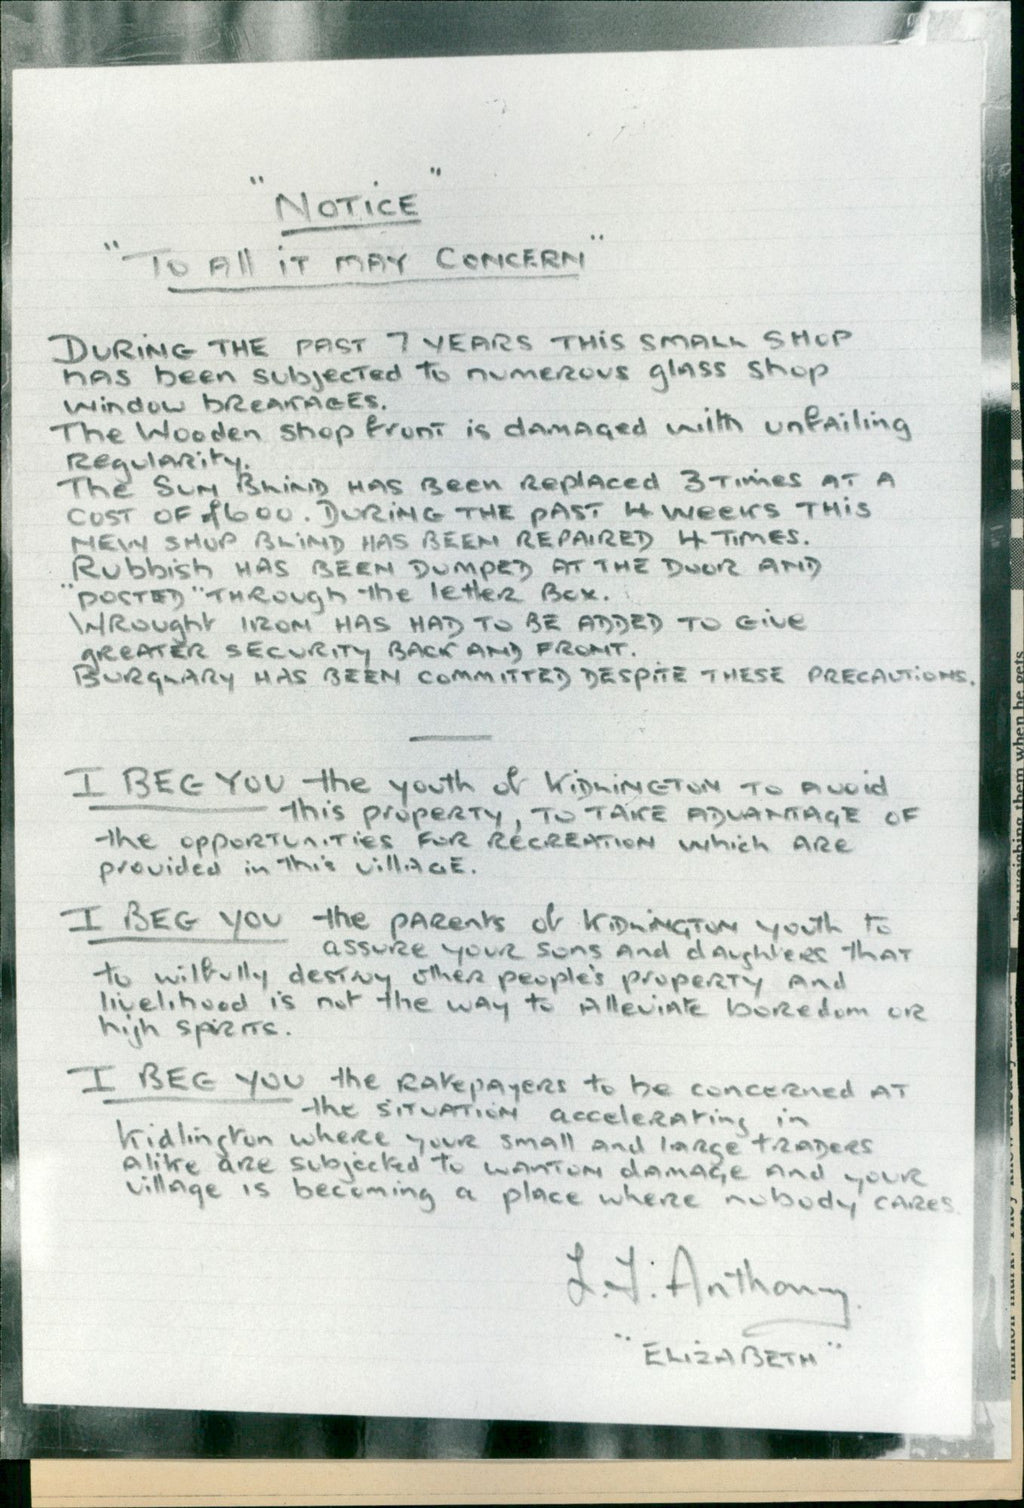 "NOTICE"
"To All iT MAY CONCERN"
DURING THE PAST 7 YEARS THIS SMALL SHOP
HAS been subjected to numerous glass shop
window BREAKAGES.
The Wooden shop front is damaged with unfailing
Regularity.
The SUN BLIND HAS Been Replaced 3 Times AT A
COST OF £600. DURING THE PAST 4 Weeks THIS
NEW SHOP BLIND HAS BEEN REPAIRED 4 TIMES.
Rubbish HAS BEEN DUMPED AT THE DOOR AND
"POSTED" THROUGH the letter Box.
WRought IRON HAS HAD TO BE ADDED TO GIVE
GREATER SECURITY BACK AND FRONT.
BURGLARY HAS BEEN COMMITTED DESPITE THESE PRECAUTIONS.
I BEG YOU the youth of KIDLINGTON TO AVOID
this property, TO TAKE ADVANTAGE OF
the OPPORTUNITIES FOR RECREATION which ARE
provided in this VILLAGE.
I BEG YOU the PARENTS of KIDLINGTON youth to
assure your sons and daughters THAT
to wilfully destroy other people's property and
livelihood is not the way to Alleviate boredom or
high SPIRITS.
I BEG YOU the RATEPAYERS to be concerned AT
the SITUATION accelerating in
Kidlington where your small and large TRADERS
Alike are subjected to WANTON damage and your
village is becoming a place where nobody CARES.
L.J. Anthony.
"ELIZABETH"
them when he gets